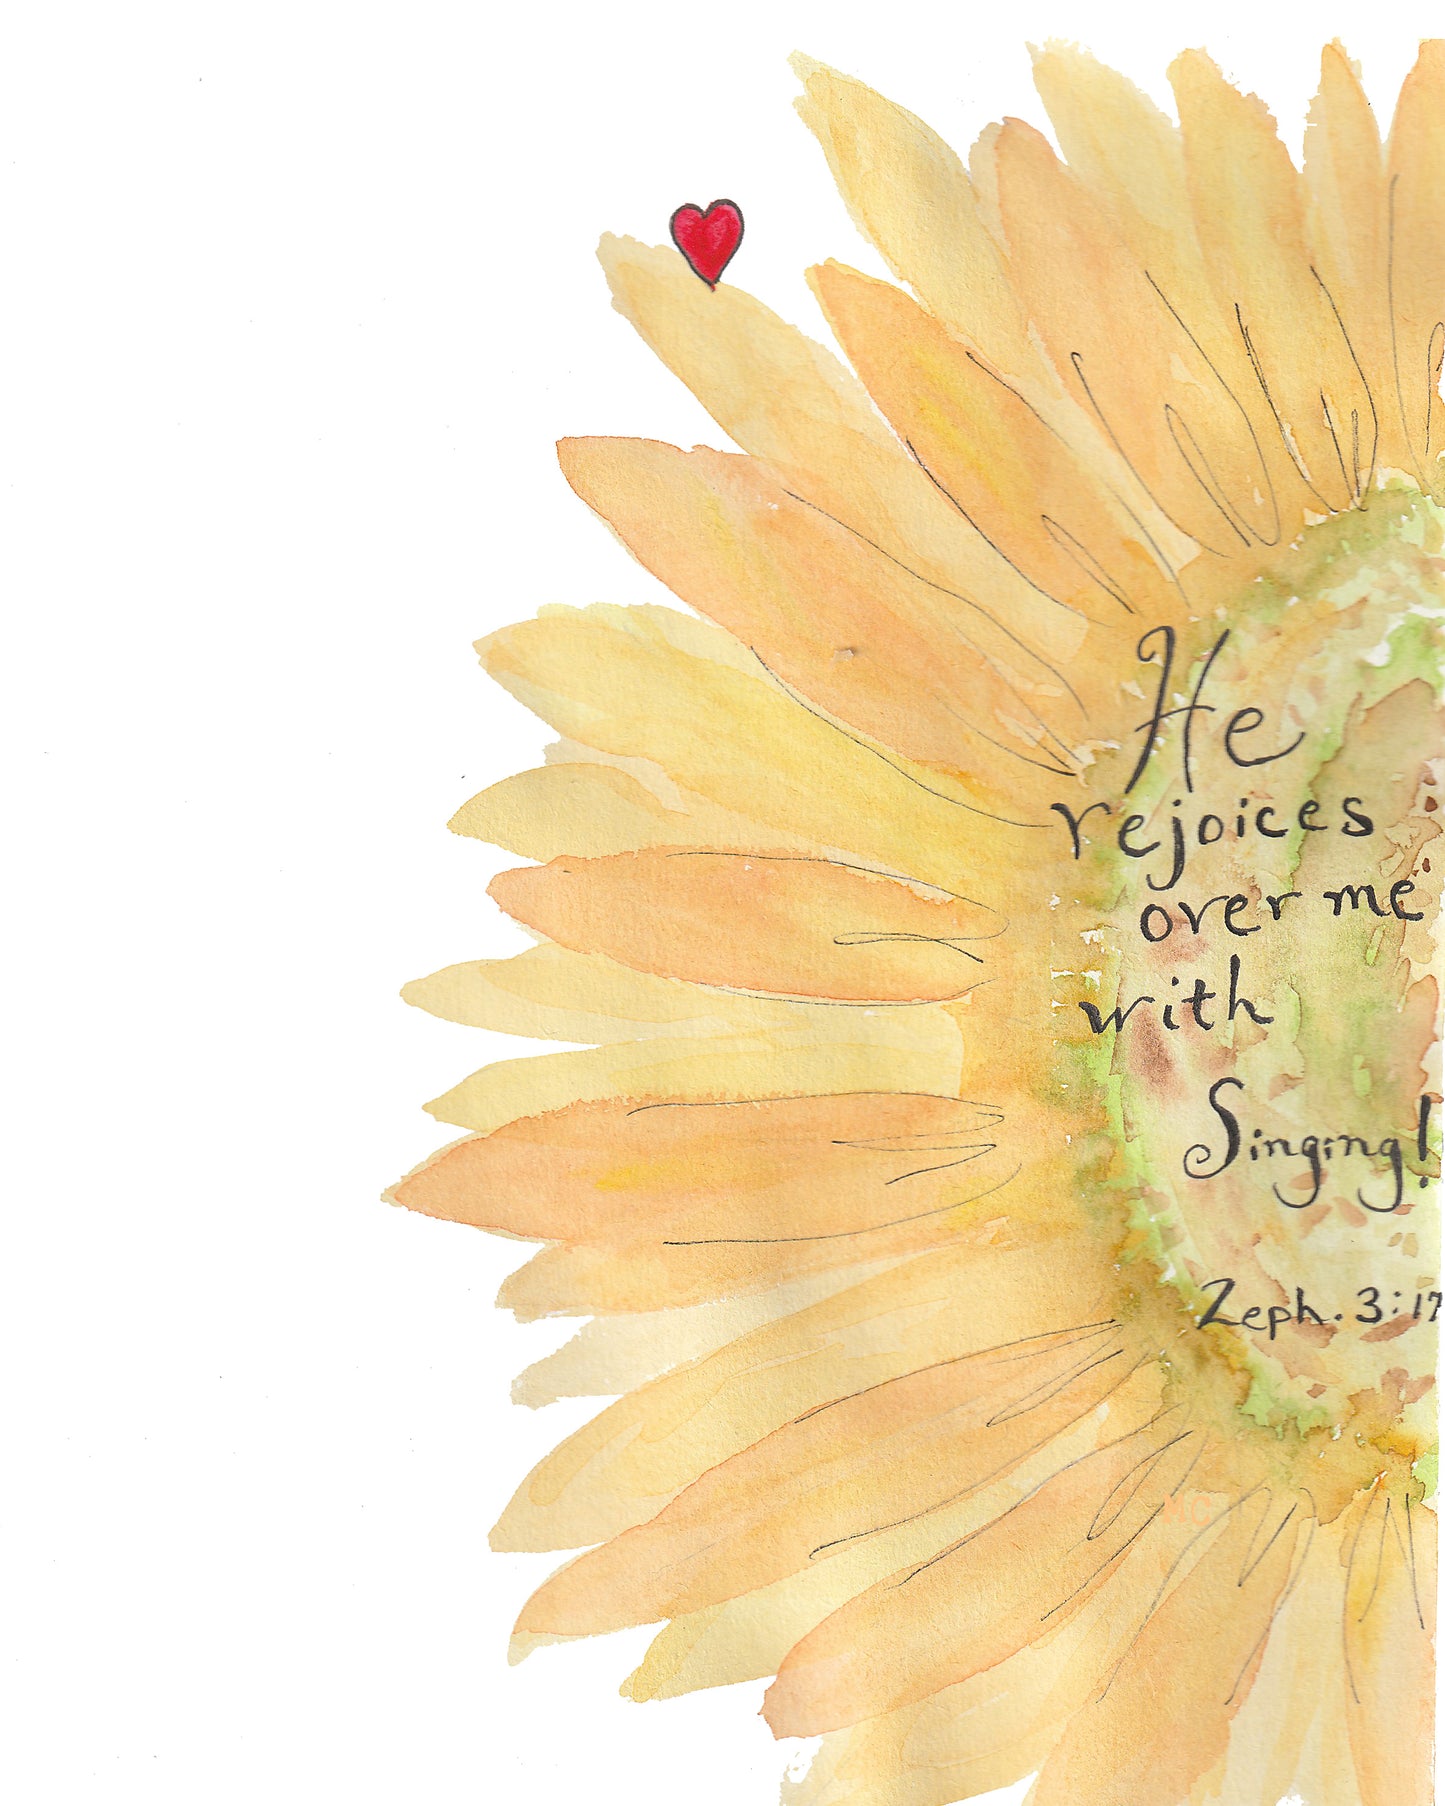 He
rejoices
over me
with
Singing!
Zeph. 3:17
MC